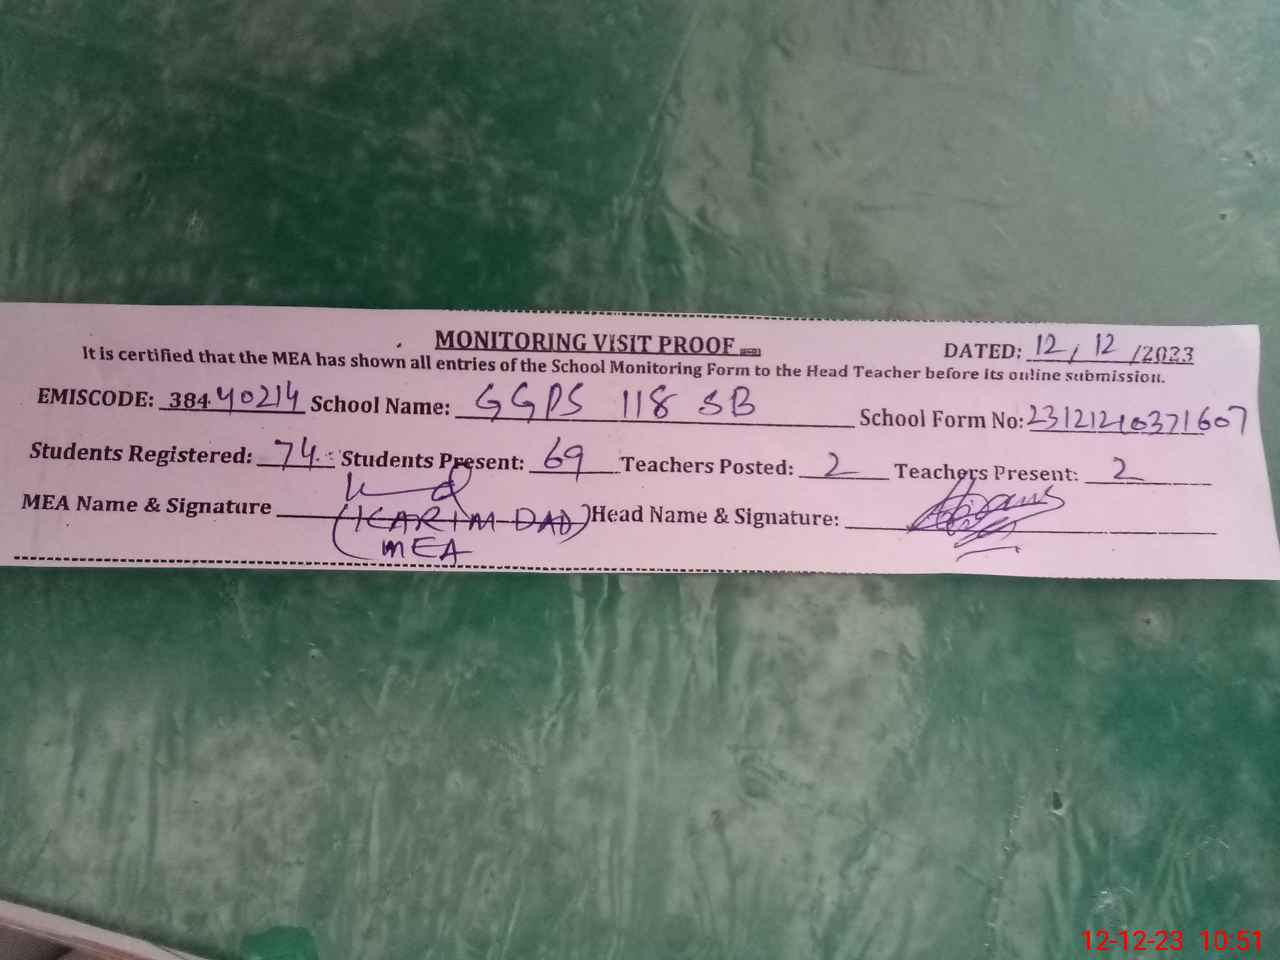 MONITORING VISIT PROOF
DATED: 12 / 12 /2023
It is certified that the MEA has shown all entries of the School Monitoring Form to the Head Teacher before its online submission.
EMISCODE: 38440214 School Name: GGPS 118 SB School Form No: 23121210371607
Students Registered: 74 Students Present: 69 Teachers Posted: 2 Teachers Present: 2
MEA Name & Signature (KARIM DAD) Head Name & Signature:
MEA
12-12-23 10:51